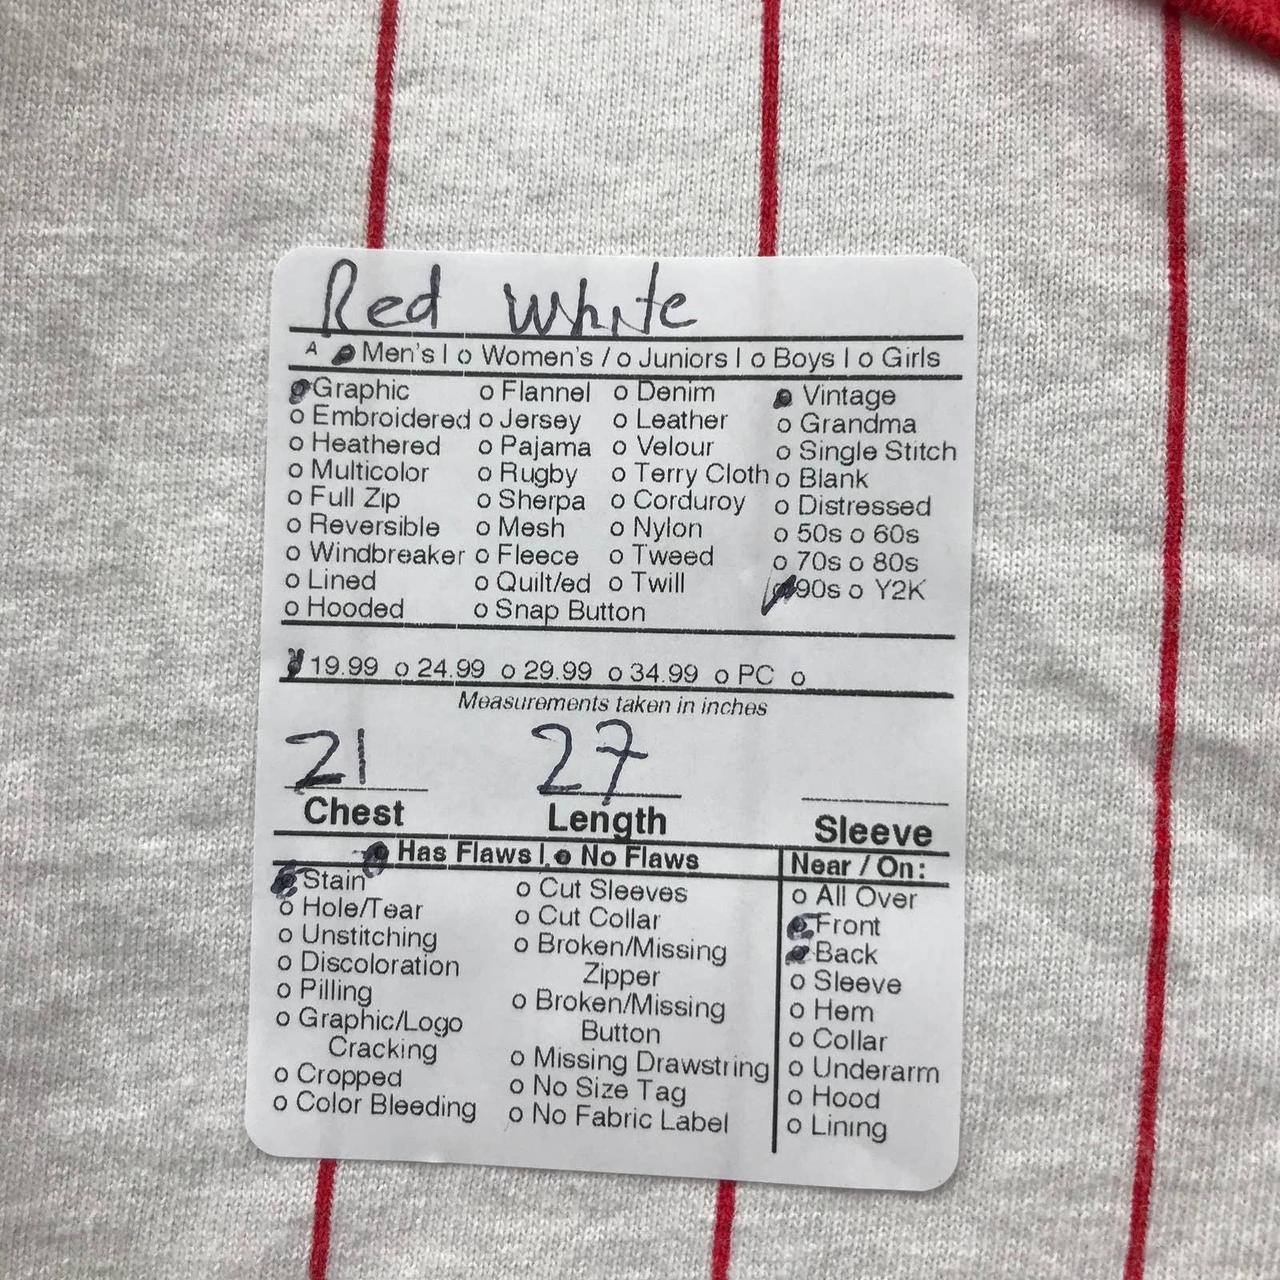 Red White
A Men's | o Women's / o Juniors | o Boys | o Girls
Graphic o Flannel o Denim Vintage
o Embroidered o Jersey o Leather o Grandma
o Heathered o Pajama o Velour o Single Stitch
o Multicolor o Rugby o Terry Cloth o Blank
o Full Zip o Sherpa o Corduroy o Distressed
o Reversible o Mesh o Nylon o 50s o 60s
o Windbreaker o Fleece o Tweed o 70s o 80s
o Lined o Quilt/ed o Twill 90s o Y2K
o Hooded o Snap Button
19.99 o 24.99 o 29.99 o 34.99 o PC o
Measurements taken in inches
21 27
Chest Length Sleeve
Has Flaws | No Flaws
Stain o Cut Sleeves
o Hole/Tear o Cut Collar
o Unstitching o Broken/Missing
o Discoloration Zipper
o Pilling o Broken/Missing
o Graphic/Logo Button
Cracking o Missing Drawstring
o Cropped o No Size Tag
o Color Bleeding o No Fabric Label
Near / On:
o All Over
Front
Back
o Sleeve
o Hem
o Collar
o Underarm
o Hood
o Lining